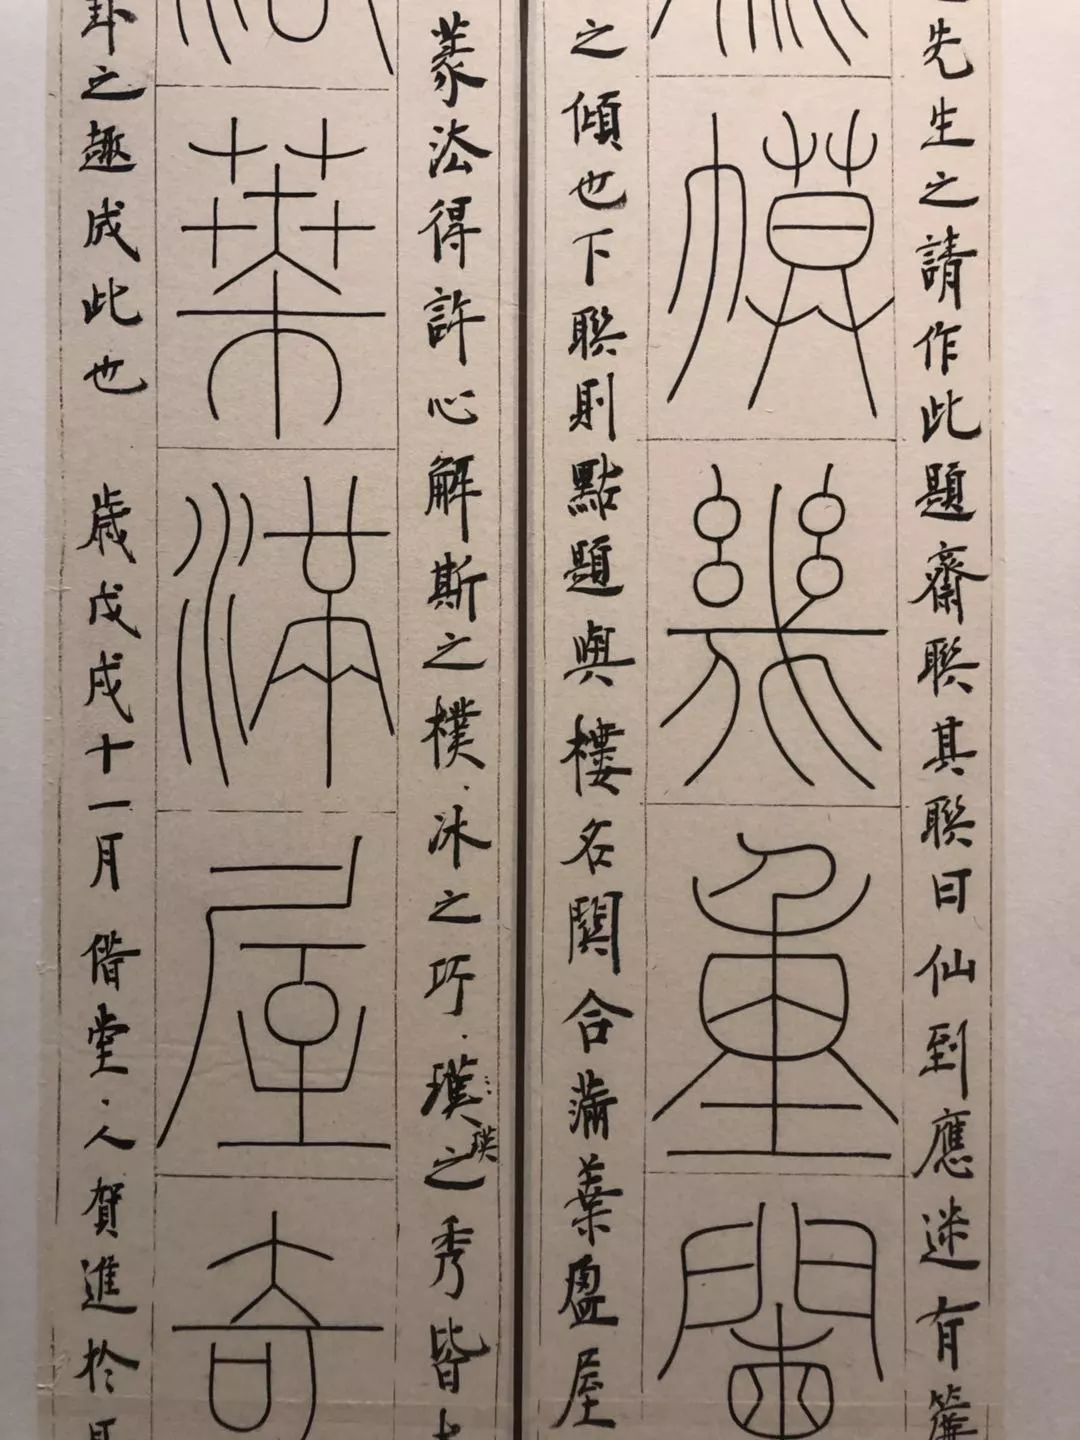 先生之請作此題齋聯其聯曰仙到應迷有簾
幙幾重闌
之傾也下聯則點題與樓名闗合滿葉盈屋
篆法得許心解斯之樸、冰之巧、璞之秀皆
璞
葉滿屋奇
卦之趣成此也 歲戊戌十一月 借堂、人賀進於